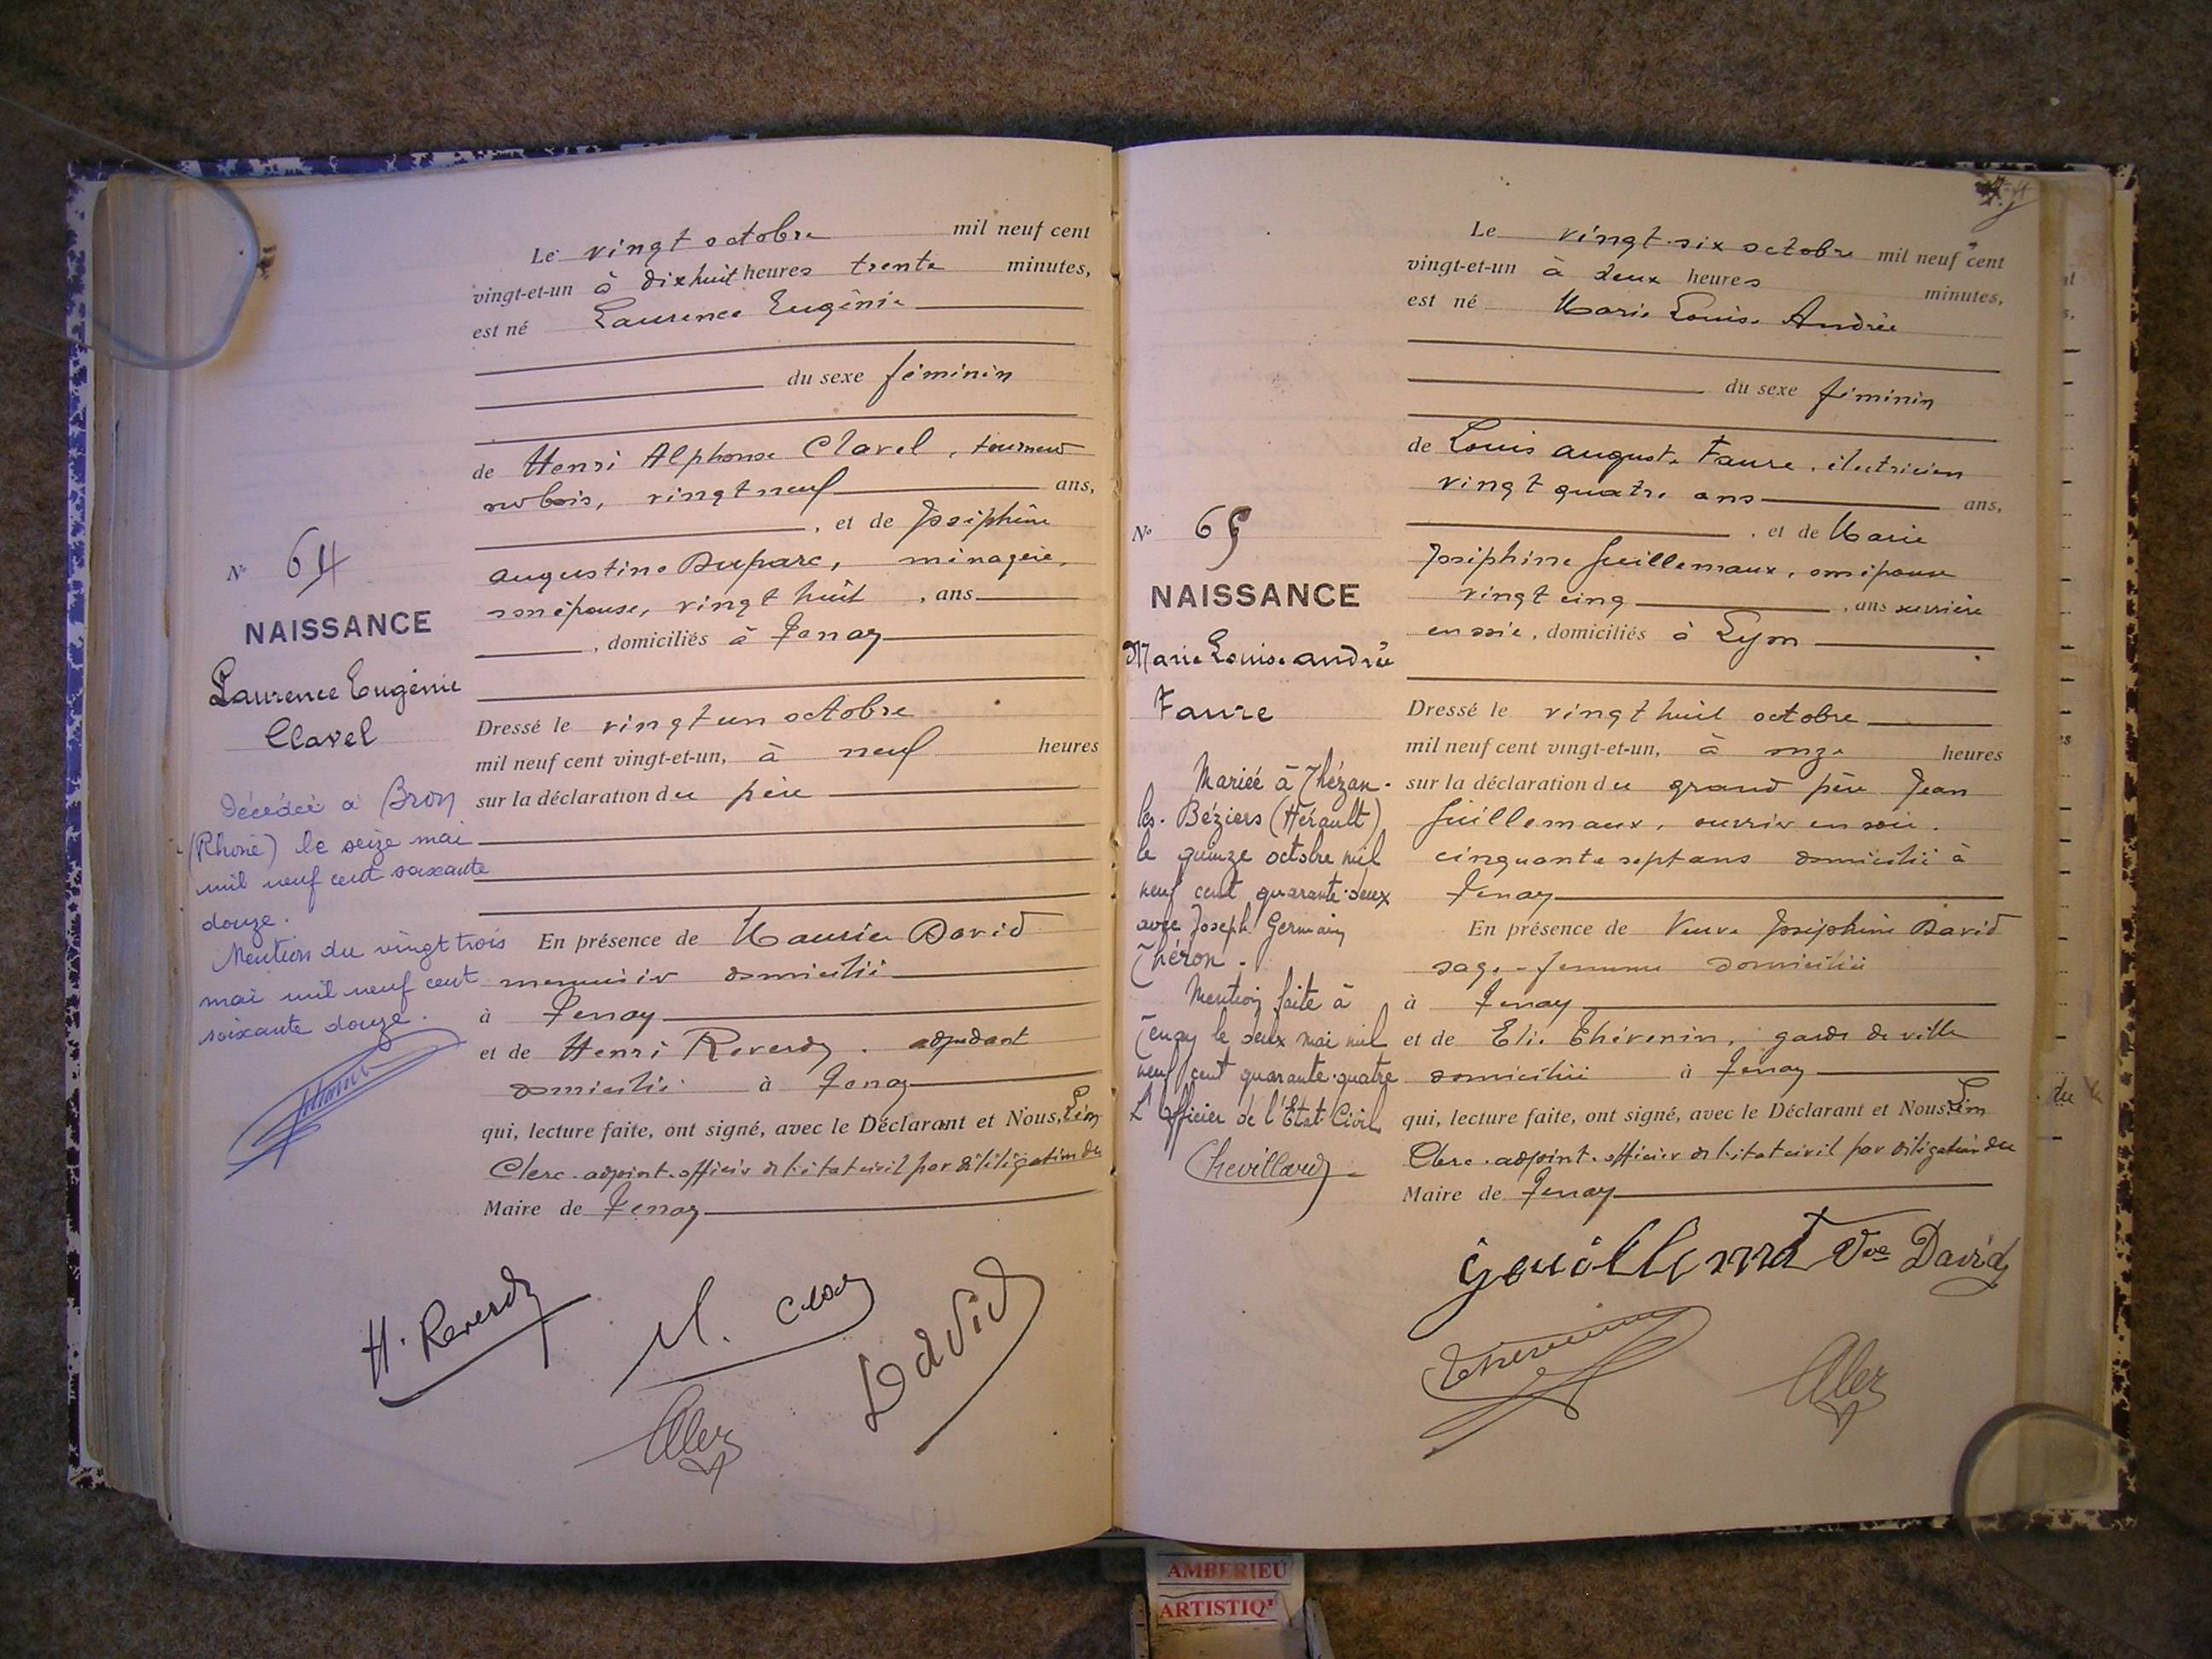 Le vingt octobre mil neuf cent
vingt-et-un à dix huit heures trente minutes,
est né Laurence Eugénie
du sexe féminin
de Henri Alphonse Clavel, tourneur
sur bois, vingt neuf ans,
, et de Joséphine
Augustine Duparc, ménagère,
son épouse, vingt huit , ans
, domiciliés à Tenay
Dressé le vingt un octobre
mil neuf cent vingt-et-un, à neuf heures
sur la déclaration du père
En présence de Maurice David
menuisier domicilié
à Tenay
et de Henri Reverdy. adjudant
domicilié à Tenay
qui, lecture faite, ont signé, avec le Déclarant et Nous, Léon
Clerc. adjoint. officier de l'état civil par délégation du
Maire de Tenay
N° 64
NAISSANCE
Laurence Eugénie
Clavel
Décédée à Bron
(Rhône) le seize mai
mil neuf cent soixante
douze.
Mention du vingt trois
mai mil neuf cent
soixante douze.
H. Reverdy
David
Le vingt-six octobre mil neuf cent
vingt-et-un à deux heures minutes,
est né Marie Louise Andrée
du sexe féminin
de Louis Auguste Faure, électricien
vingt quatre ans ans,
, et de Marie
Joséphine Guillemaux, son épouse
vingt cinq , ans ouvrière
en soie, domiciliés à Lyon
Dressé le vingt huit octobre
mil neuf cent vingt-et-un, à onze heures
sur la déclaration du grand père Jean
Guillemaux, ouvrier en soie.
cinquante sept ans domicilié à
Tenay
En présence de Veuve Joséphine David
sage-femme domiciliée
à Tenay
et de Elie Thévenin, garde de ville
domicilié à Tenay
qui, lecture faite, ont signé, avec le Déclarant et Nous, Léon
Clerc. adjoint. officier de l'état civil par délégation du
Maire de Tenay
N° 65
NAISSANCE
Marie Louise Andrée
Faure
Mariée à Thézan-
les-Béziers (Hérault)
le quinze octobre mil
neuf cent quarante-deux
avec Joseph Germain
Théron.
Mention faite à
Tenay le deux mai mil
neuf cent quarante-quatre
L'Officier de l'Etat-Civil
Chevillard
Vve David
Thévenin
AMBERIEU
ARTISTIQ'